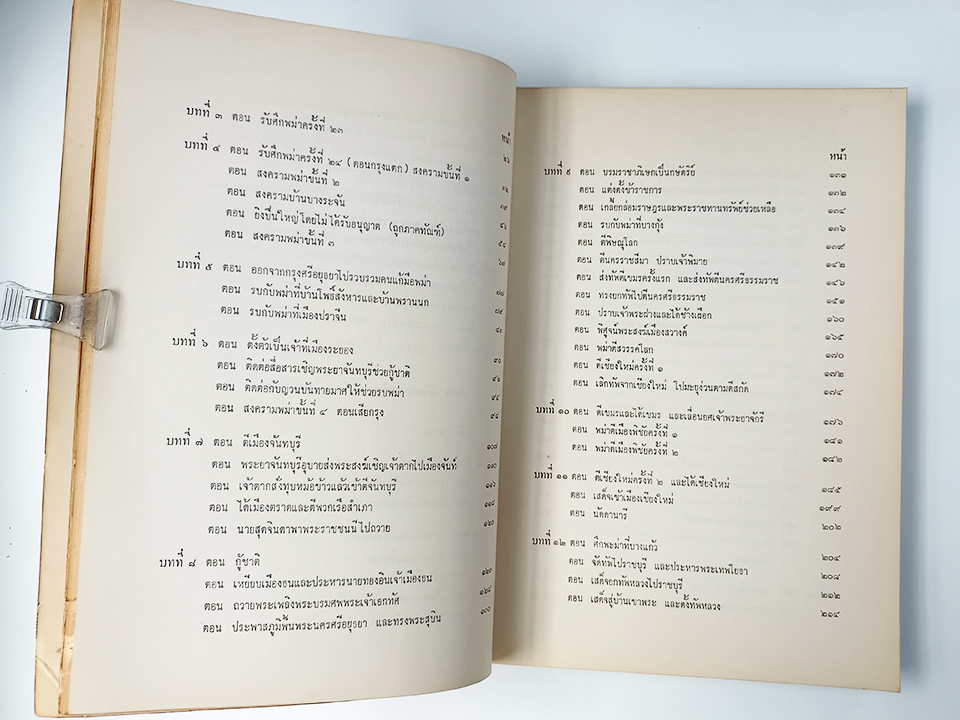 บทที่ ๓ ตอน รับศึกพม่าครั้งที่ ๒๓
หน้า
๒๖
บทที่ ๔ ตอน รับศึกพม่าครั้งที่ ๒๔ (ตอนกรุงแตก) สงครามขั้นที่ ๑
ตอน สงครามพม่าขั้นที่ ๒ ๓๒
ตอน สงครามบ้านบางระจัน
ตอน ยิงปืนใหญ่โดยไม่ได้รับอนุญาต (ถูกภาคทัณฑ์)
ตอน สงครามพม่าขั้นที่ ๓
บทที่ ๕ ตอน ออกจากกรุงศรีอยุธยาไปรวบรวมคนแก้มือพม่า
ตอน รบกับพม่าที่บ้านโพธิ์สังหารและบ้านพรานนก
ตอน รบกับพม่าที่เมืองปราจีน
บทที่ ๖ ตอน ตั้งตัวเป็นเจ้าที่เมืองระยอง
ตอน ติดต่อสื่อสารเชิญพระยาจันทบุรีช่วยกู้ชาติ
ตอน ติดต่อกับญวนบันทายมาศให้ช่วยรบพม่า
ตอน สงครามพม่าขั้นที่ ๔ ตอนเสียกรุง
บทที่ ๗ ตอน ตีเมืองจันทบุรี ๑๐๘
ตอน พระยาจันทบุรีอุบายส่งพระสงฆ์เชิญเจ้าตากไปเมืองจันท์ ๑๑๐
ตอน เจ้าตากสั่งทุบหม้อข้าวแล้วเข้าตีจันทบุรี
ตอน ได้เมืองตราดและตีพวกเรือสำเภา
ตอน นายสุดจินดาพาพระราชชนนีไปถวาย ๑๒๐
บทที่ ๘ ตอน กู้ชาติ
ตอน เหยียบเมืองธนและประหารนายทองอินเจ้าเมืองธน
ตอน ถวายพระเพลิงพระบรมศพพระเจ้าเอกทัศ
ตอน ประพาสภูมิพื้นพระนครศรีอยุธยา และทรงพระสุบิน
หน้า
บทที่ ๙ ตอน บรมราชาภิเษกเป็นกษัตริย์ ๑๓๑
ตอน แต่งตั้งข้าราชการ ๑๓๒
ตอน เกลี้ยกล่อมราษฎรและพระราชทานทรัพย์ช่วยเหลือ ๑๓๔
ตอน รบกับพม่าที่บางกุ้ง ๑๓๖
ตอน ตีพิษณุโลก ๑๓๙
ตอน ตีนครราชสีมา ปราบเจ้าพิมาย ๑๔๒
ตอน ส่งทัพตีเขมรครั้งแรก และส่งทัพตีนครศรีธรรมราช ๑๔๖
ตอน ทรงยกทัพไปตีนครศรีธรรมราช ๑๕๑
ตอน ปราบเจ้าพระฝางและได้ช้างเผือก ๑๖๐
ตอน พิศูจน์พระสงฆ์เมืองสวางค์ ๑๖๕
ตอน พม่าตีสวรรคโลก ๑๗๐
ตอน ตีเชียงใหม่ครั้งที่ ๑ ๑๗๒
ตอน เลิกทัพจากเชียงใหม่ โปมะยุง่วนตามตีสกัด ๑๗๔
บทที่ ๑๐ ตอน ตีเขมรและได้เขมร และเลื่อนยศเจ้าพระยาจักรี ๑๗๖
ตอน พม่าตีเมืองพิชัยครั้งที่ ๑ ๑๘๑
ตอน พม่าตีเมืองพิชัยครั้งที่ ๒ ๑๘๒
บทที่ ๑๑ ตอน ตีเชียงใหม่ครั้งที่ ๒ และได้เชียงใหม่ ๑๘๕
ตอน เสด็จเข้าเมืองเชียงใหม่ ๑๙๙
ตอน นัดดานารี ๒๐๒
บทที่ ๑๒ ตอน ศึกพะม่าที่บางแก้ว ๒๐๔
ตอน จัดทัพไปราชบุรี และประหารพระเทพโยธา ๒๐๘
ตอน เสด็จยกทัพหลวงไปราชบุรี ๒๑๒
ตอน เสด็จสู่บ้านเขาพระ และตั้งทัพหลวง ๒๑๔